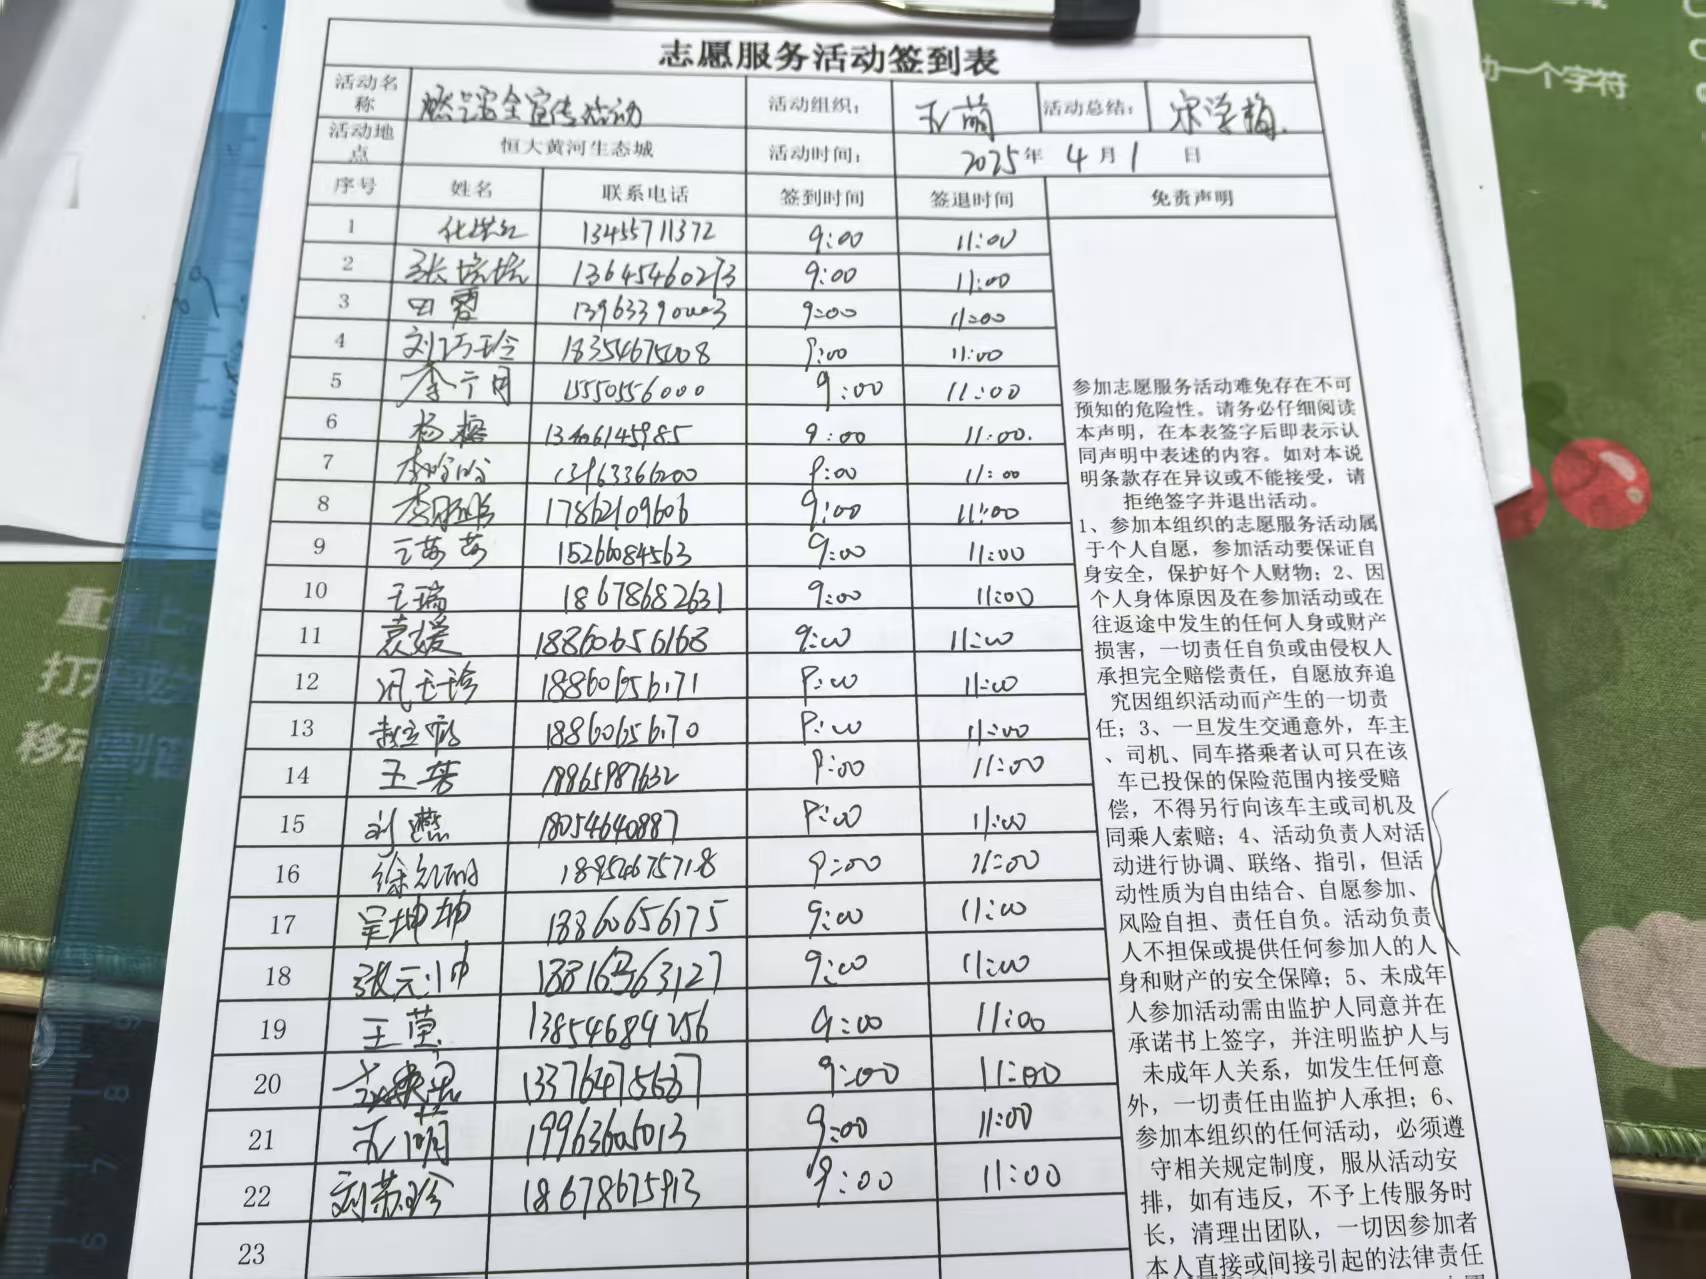 志愿服务活动签到表
活动名称 燃气安全宣传活动 活动组织： 活动总结： 宋学梅
活动地点 恒大黄河生态城 活动时间： 2025年 4月1日
序号 姓名 联系电话 签到时间 签退时间 免责声明
1 13455711372 9:00 11:00
2 张悦悦 13645460273 9:00 11:00
3 田霞 9:00 11:00
4 刘巧玲 18354675008 9:00 11:00
5 李宁月 15550556000 9:00 11:00
6 杨榕 13406145985 9:00 11:00
7 李哈哈 13963366200 9:00 11:00
8 17862109606 9:00 11:00
9 王茜茜 15266084563 9:00 11:00
10 王瑞 18678682631 9:00 11:00
11 袁媛 18860656168 9:00 11:00
12 18860656171 9:00 11:00
13 18860656170 9:00 11:00
14 王芳 18865987632 9:00 11:00
15 刘燕 18054640887 9:00 11:00
16 18954675718 9:00 11:00
17 吴坤坤 18860656175 9:00 11:00
18 张元帅 9:00 11:00
19 王莫 13854684256 9:00 11:00
20 13376475687 9:00 11:00
21 19963605013 9:00 11:00
22 刘荣珍 18678675913 9:00 11:00
23
参加志愿服务活动难免存在不可
预知的危险性。请务必仔细阅读
本声明，在本表签字后即表示认
同声明中表述的内容。如对本说
明条款存在异议或不能接受，请
拒绝签字并退出活动。
1、参加本组织的志愿服务活动属
于个人自愿，参加活动要保证自
身安全，保护好个人财物；2、因
个人身体原因及在参加活动或在
往返途中发生的任何人身或财产
损害，一切责任自负或由侵权人
承担完全赔偿责任，自愿放弃追
究因组织活动而产生的一切责
任；3、一旦发生交通意外，车主
、司机、同车搭乘者认可只在该
车已投保的保险范围内接受赔
偿，不得另行向该车主或司机及
同乘人索赔；4、活动负责人对活
动进行协调、联络、指引，但活
动性质为自由结合、自愿参加、
风险自担、责任自负。活动负责
人不担保或提供任何参加人的人
身和财产的安全保障；5、未成年
人参加活动需由监护人同意并在
承诺书上签字，并注明监护人与
未成年人关系，如发生任何意
外，一切责任由监护人承担；6、
参加本组织的任何活动，必须遵
守相关规定制度，服从活动安
排，如有违反，不予上传服务时
长，清理出团队，一切因参加者
本人直接或间接引起的法律责任
动一个字符
重
打开
移动到窗
9
8
7
6